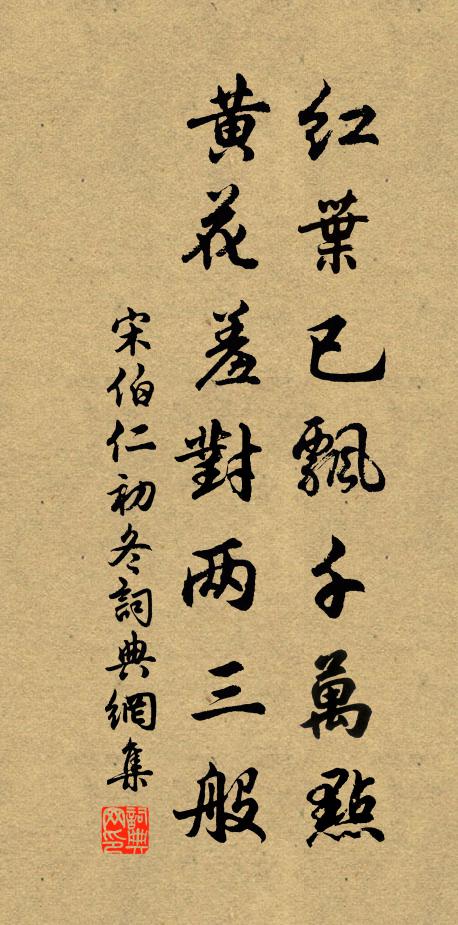 紅葉已飄千萬點
黄花羞對两三般
宋伯仁初冬詞典網集
詞典网印